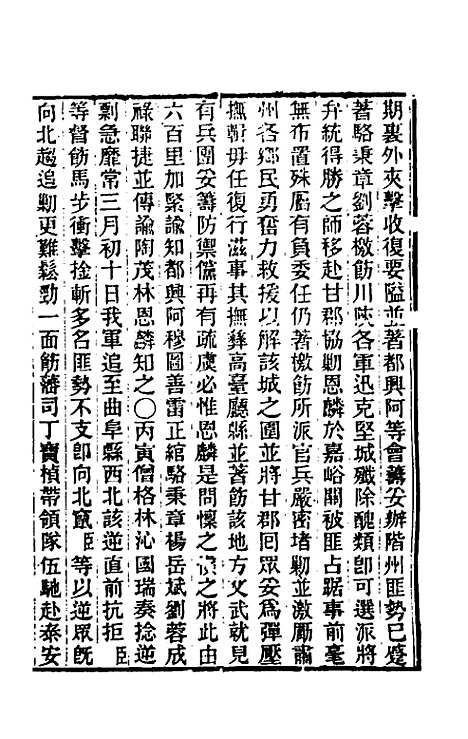 期裏外夾擊收復要隘並著都興阿等會籌妥辦階州匪勢已蹙
著駱秉章劉蓉檄飭川陝各軍迅克堅城殲除醜類卽可選派將
弁統得勝之師移赴甘郡協勦恩麟於嘉峪關被匪占踞事前毫
無布置殊屬有負委任仍著檄飭所派官兵嚴密堵勦並激勵肅
州各鄉民勇奮力救援以解該城之圍並將甘郡回眾妥爲彈壓
撫輯毋任復行滋事其撫彝高臺廳縣並著飭該地方文武就見
有兵團妥善防禦儻再有疏虞必惟恩麟是問懍之愼之將此由
六百里加緊諭知都興阿穆圖善雷正綰駱秉章楊岳斌劉蓉成
祿聯捷並傳諭陶茂林恩麟知之〇丙寅僧格林沁國瑞奏捻逆
剽急靡常三月初十日我軍追至曲阜縣西北該逆直前抗拒臣
等督飭馬步衝擊捡斬多名匪勢不支卽向北竄臣等以逆眾旣
向北趨追勦更難鬆勁一面飭藩司丁寶楨帶領隊伍馳赴泰安